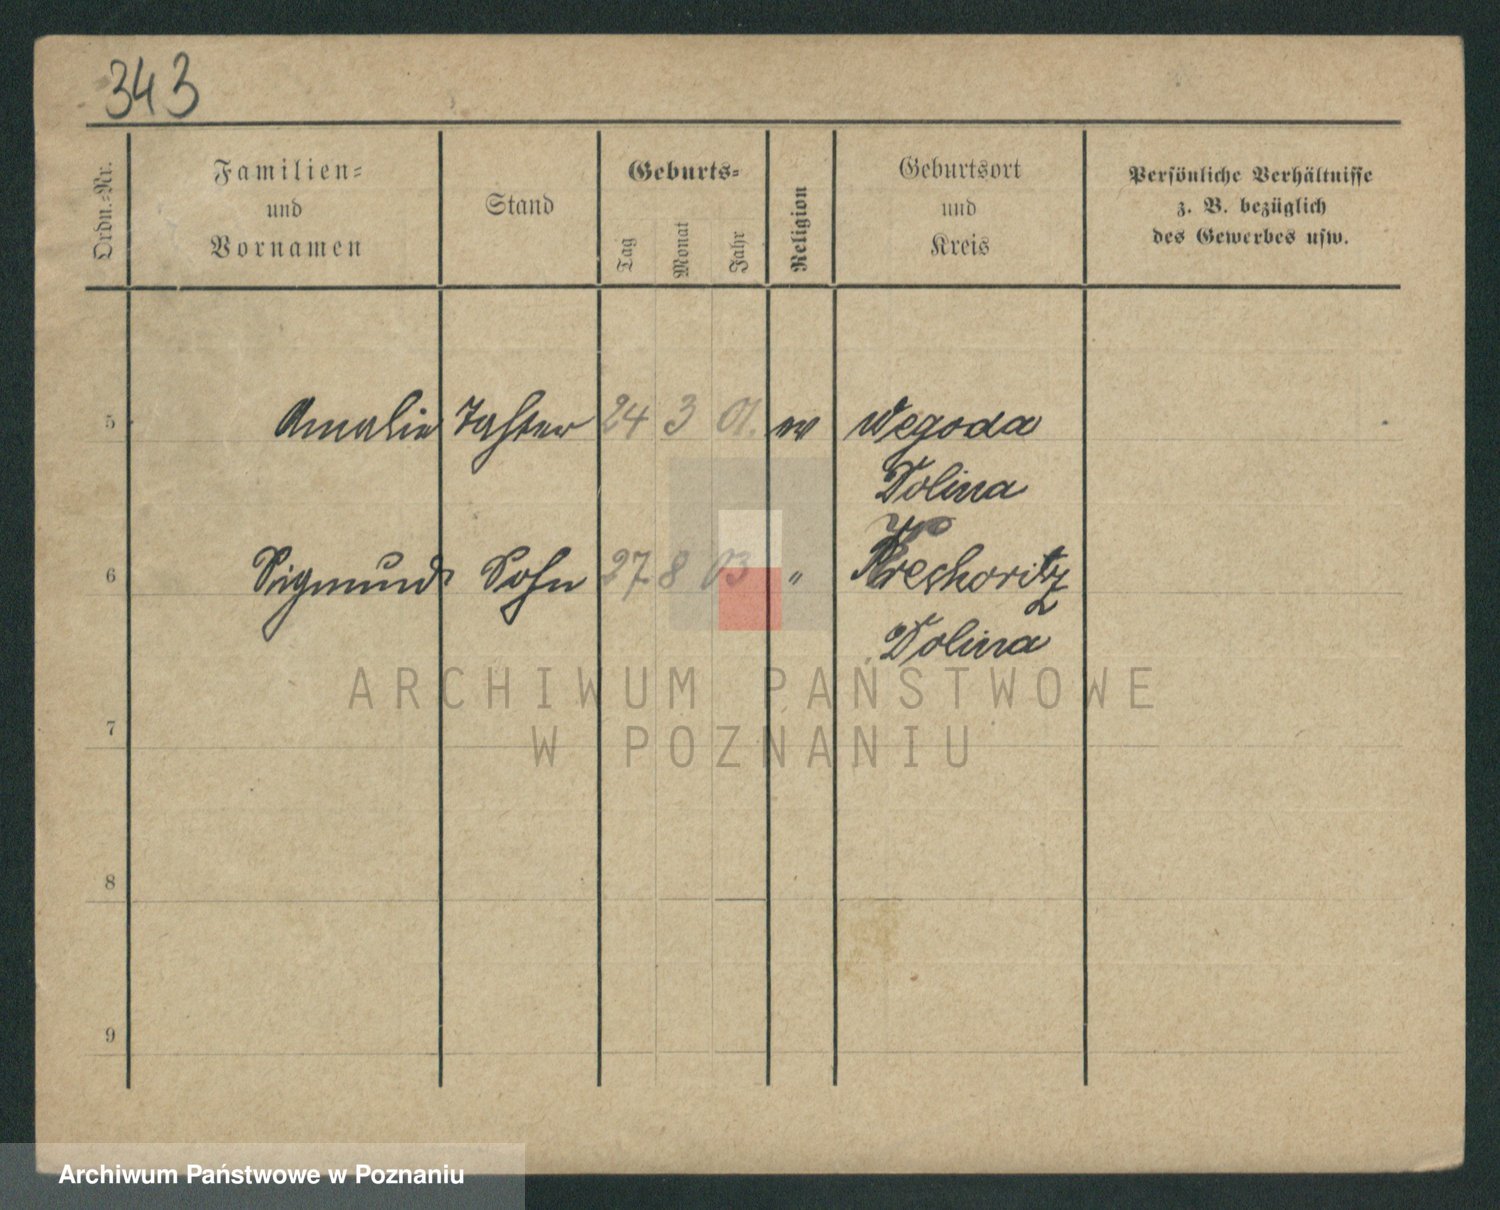 343
Ordn.-Nr.
Familien-
und
Vornamen
Stand
Geburts-
Tag
Monat
Jahr
Religion
Geburtsort
und
Kreis
Persönliche Verhältnisse
z. B. bezüglich
des Gewerbes usw.
5 Amalie Tochter 24 3 01. Wegoda
Dolina
6 Sigmund Sohn 27 8 03 "
Dolina
7
8
9
ARCHIWUM PAŃSTWOWE
W POZNANIU
Archiwum Państwowe w Poznaniu